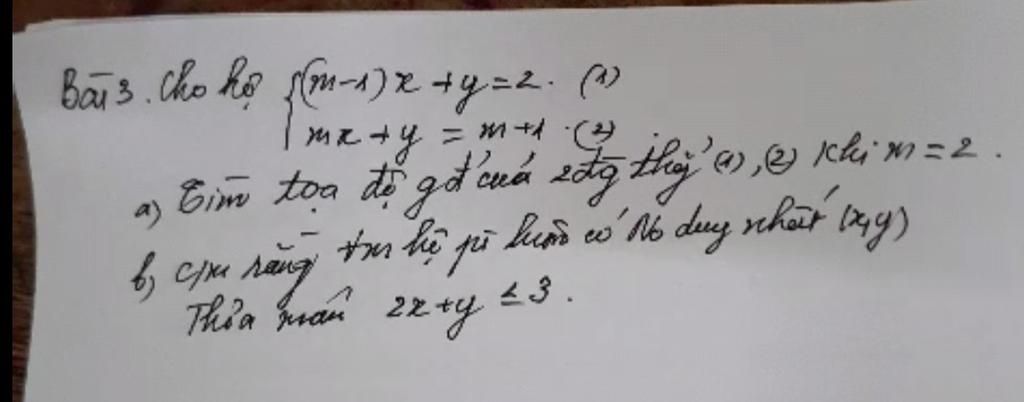 Bài 3. Cho hệ {(m-1)x + y = 2. (1)
mx + y = m+1. (2)
a) Tìm tọa độ gđ của 2đg thg (1), (2) khi m = 2.
b) c/m rằng ∀m hệ pt luôn có No duy nhất (x,y)
Thỏa mãn 2x+y ≤ 3.